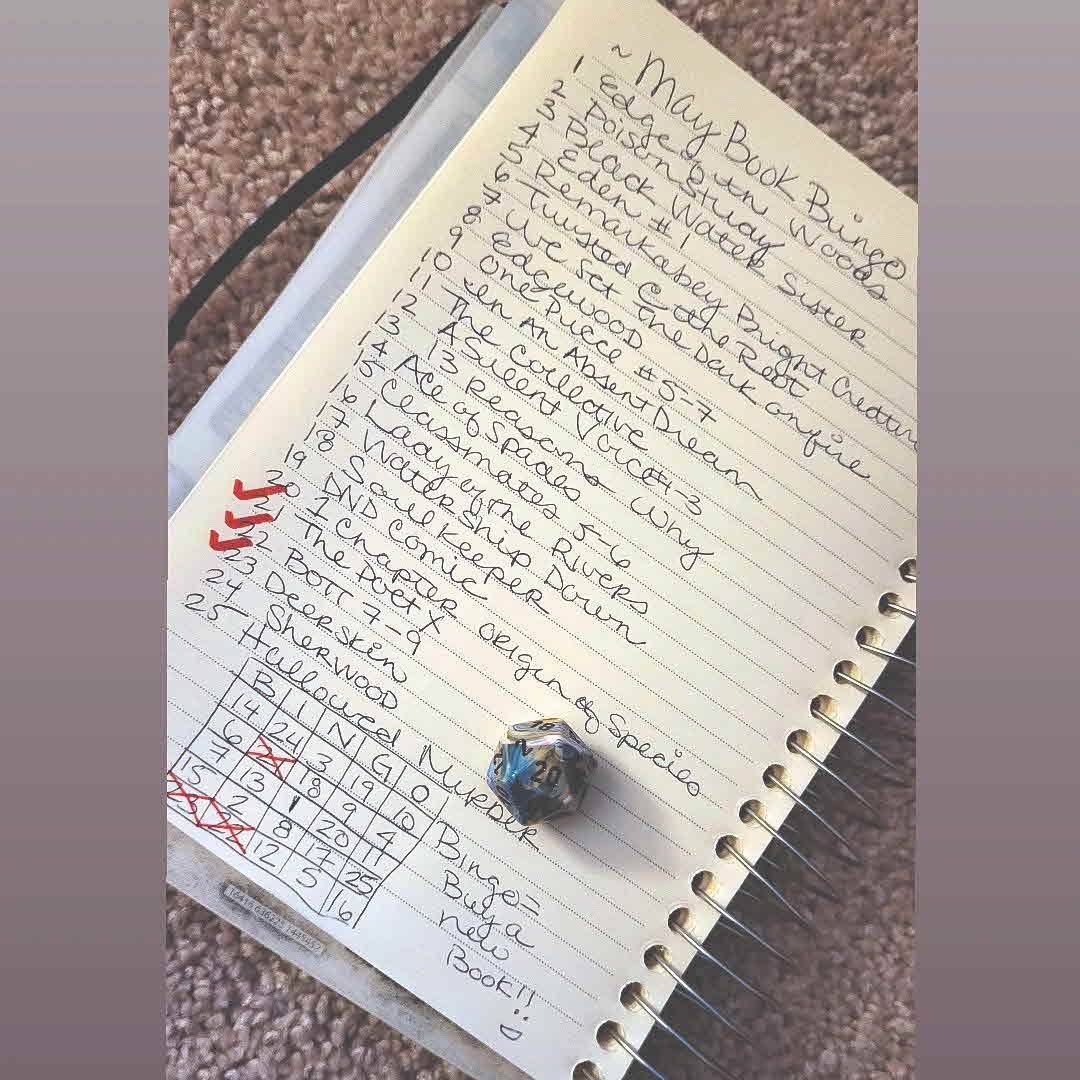 ~ May Book Bingo
1 Edge in the Woods
2 Poison Study
3 Black Water Sister
4 Eden #1
5 Remarkabley Bright Creatur
6 Twisted C the Root
7 We Set The Dark on fire
8 Edgewood
9 One Piece #5-7
10 In An Absent Dream
11 The Collective
12 A Silent Voice #1-3
13 13 Reasons Why
14 Ace of Spades
15 Classmates 5-6
16 Lady of the Rivers
17 Watership Down
18 Soul Keeper
19 DND Comic
20 1 Chapter origin of Species
The Poet X
22 BOTT 7-9
23 Deerskin
24 Sherwood
25 Hallowed Murder
B I N G O
14 24 3 19 10
6 18 9 4
7 13 1 20 11
15 2 8 17 25
23 22 12 5 16
Bingo=
Buy a
new
Book!!
20
2